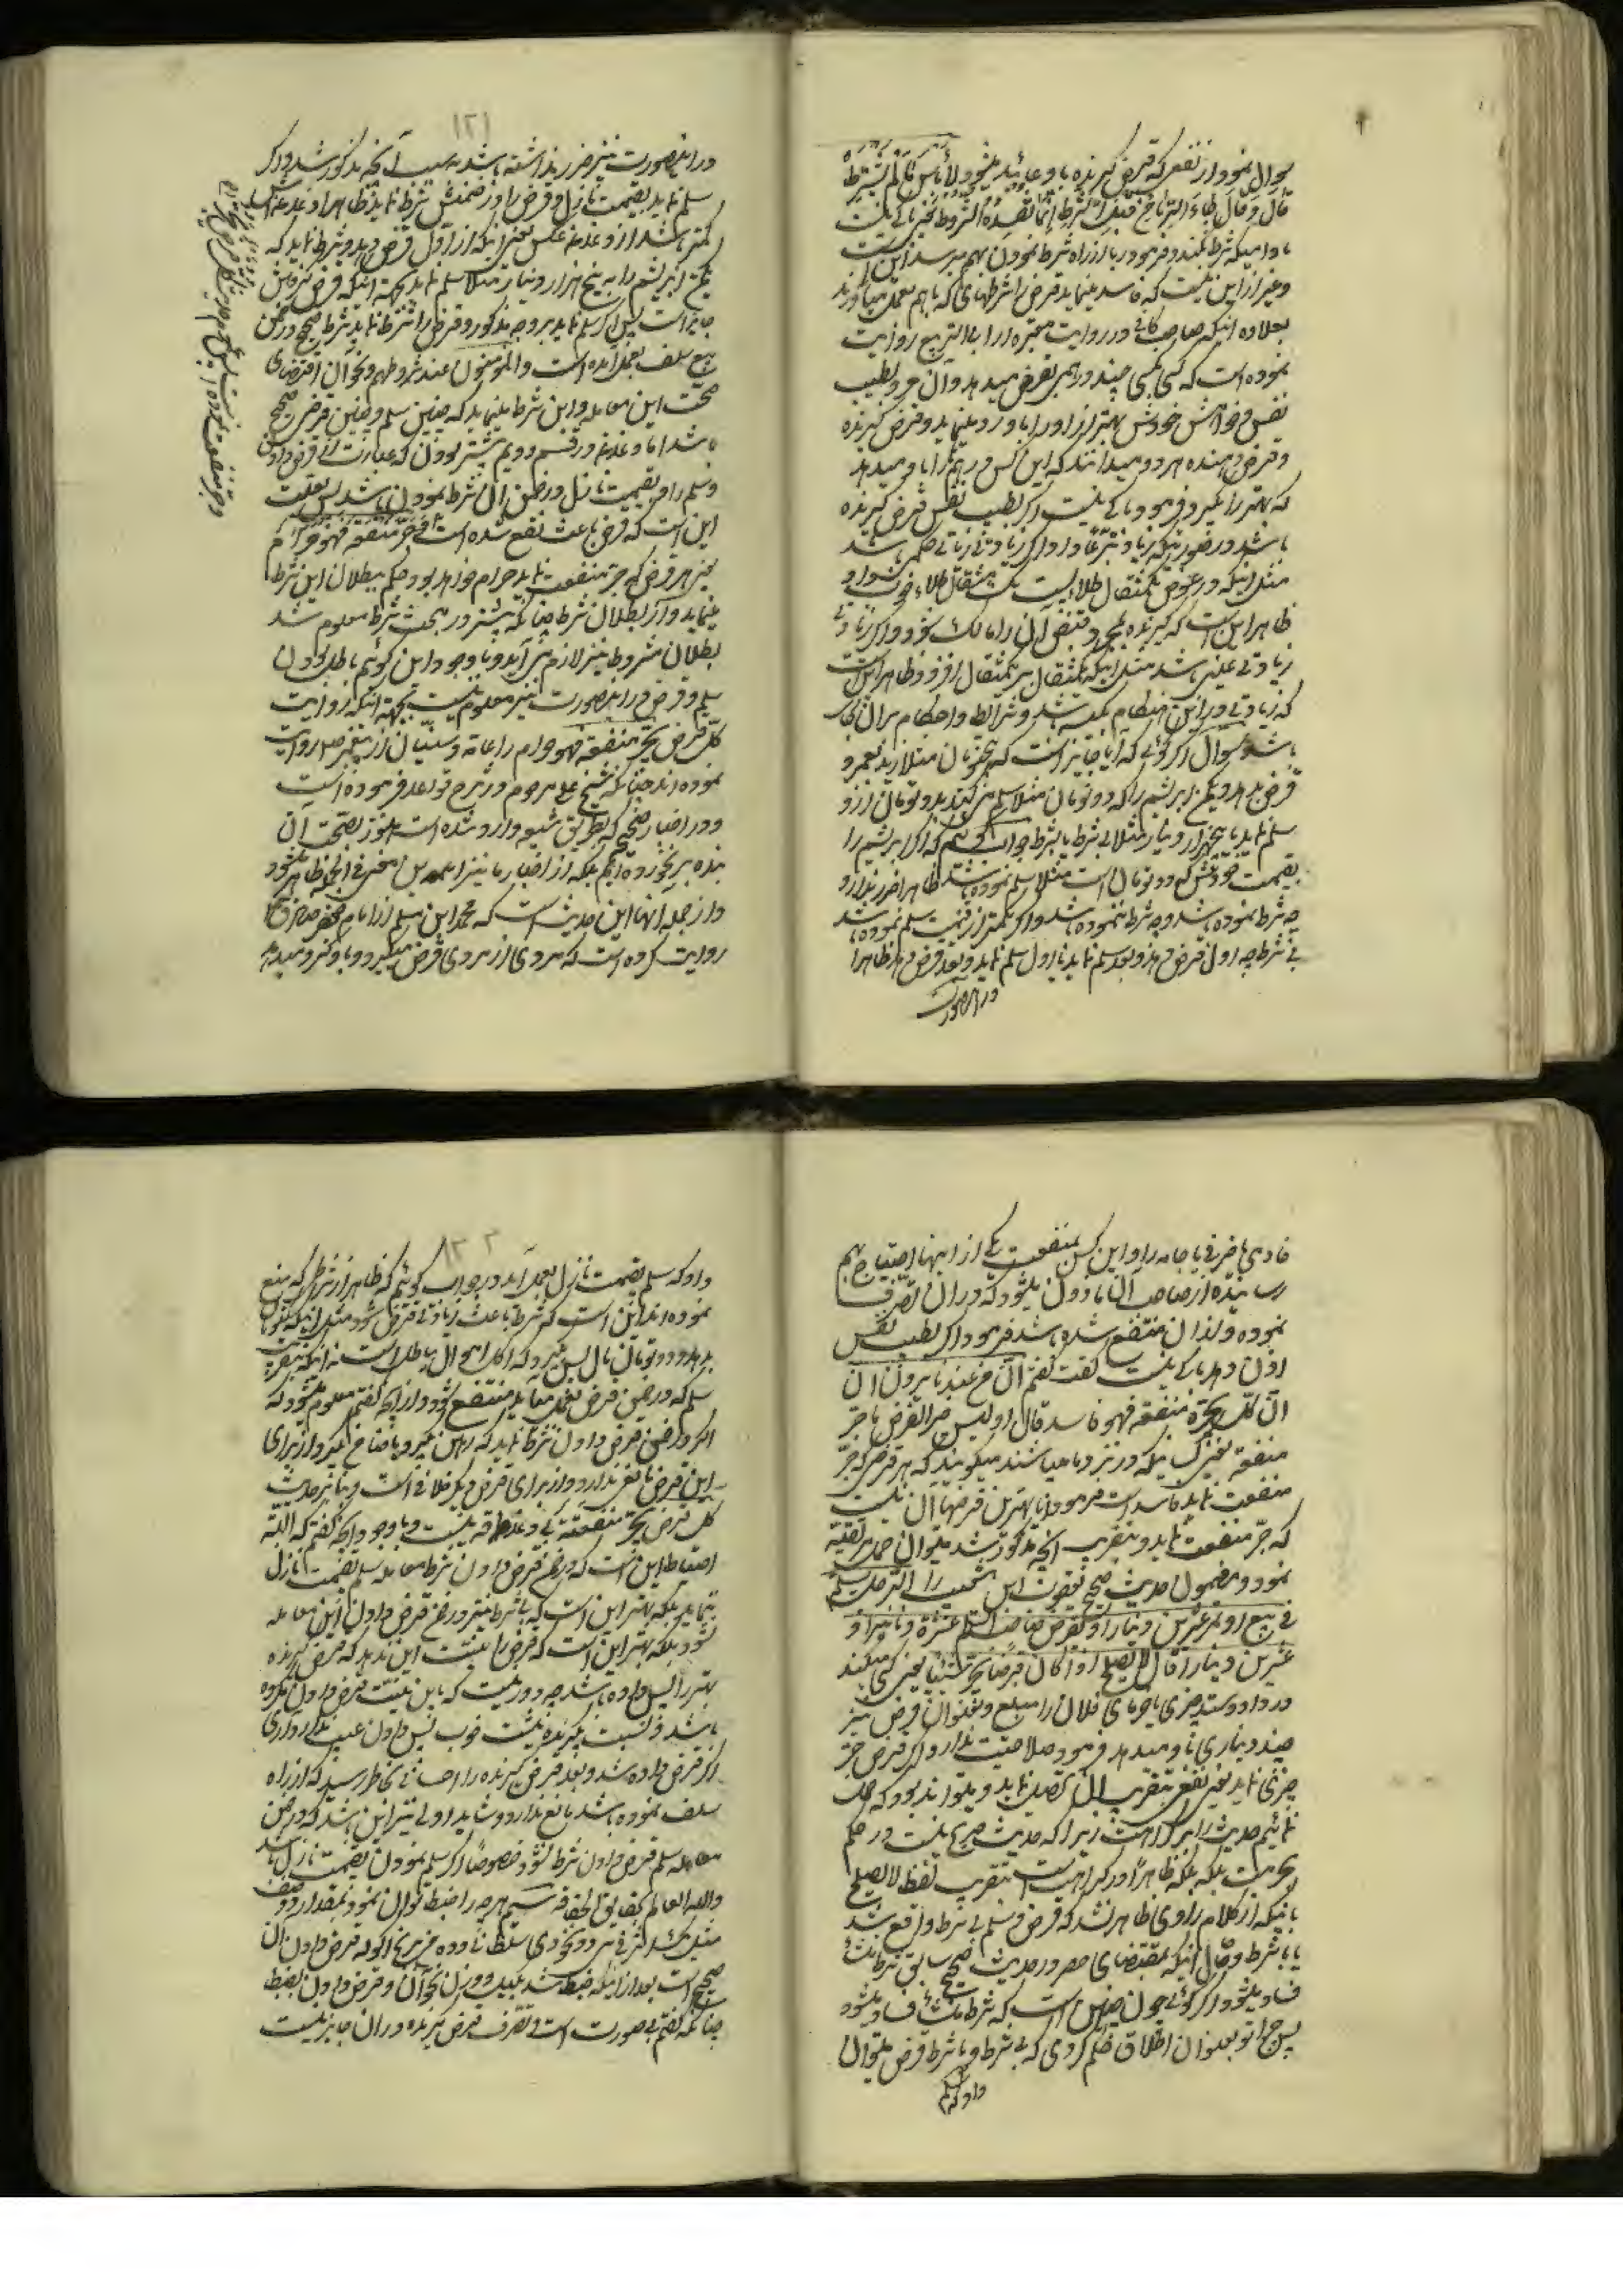 سوال نمود از نفعی که قرض گیرنده باو عاید میشود ولا بأس مالم یشترط
قال و قال جاء الربا من قبل الشرط انما تفسده الشروط یعنی باکی نیست
مادامیکه شرط نکنند و فرمود ربا از راه شرط نمودن بهم میرسد این است
و غیر از این نیست که فاسد مینماید قرض را شرطهای که باهم بعمل میآورند
بعلاوه اینکه صاحب کافی در روایت معتبره از ابا الربیع روایت
نموده است که کسی بکسی چند درهمی بقرض میدهد و آن مرد بطیب
نفس و خواهش خودش بهتر از او را باو رد مینماید و قرض گیرنده
و قرض دهنده هر دو میدانند که این کس درهم را باو میدهد
که بهتر را بگیرد فرمود باکی نیست اگر بطیب نفس قرض گیرنده
باشد در صورتیکه زیاد تبرعا داد و اگر زیادتی زیاتی حکمی باشد
مثل اینکه در عوض یکمثقال طلاء پست یک مثقال طلاء خوب
ظاهر این است که گیرنده بمجرد قبض آن را مالک شود و اگر زیادتی
زیادتی عینی باشد مثل اینکه یکمثقال بر یکمثقال افزود ظاهر این است
که زیادتی در این هنگام هبه باشد و شرایط و احکام بر آن جاری
باشد سوال اگر گوئی که آیا جایز است که پنجتومان مثلا زید بعمرو
قرض بدهد و یکمن ابریشم را که دو تومان مثلا
سلم نماید به پنجهزار دینار مثلا بی شرط یا بشرط جواب گوئیم که اگر ابریشم را
بقیمت خودش که دو تومان است مثلا سلم نموده باشد ظاهرا ضرر ندارد
چه شرط نموده باشد و چه شرط ننموده باشد و اگر بکمتر از قیمت سلم نموده باشد
بی شرط چه اول قرض دهد و بعد سلم نماید یا اول سلم نماید و بعد قرض دهد ظاهرا
در این صورت
۱۲۱
در این صورت نیز ضرر نداشته باشد بسبب آنچه مذکور شد و اگر
سلم نماید بقیمت نازل و قرض را در ضمنش شرط نماید ظاهرا
کمتر باشد از دغدغه عکس یعنی اینکه از اول قرض دهد و شرط نماید که
یکمن ابریشم را به پنج هزار دینار مثلا سلم نماید بجهة اینکه قرض
جایز است پس اگر سلم نماید بر وجه مذکور و قرض را شرط نماید شرط صحیح در ضمن
بیع سلف بعمل آمده است و المومنون عند شروطهم و نحو آن اقتضای
صحت این معامله و این شرط مینماید که چنین سلم و چنین قرض صحیح
باشد اما دغدغه در قسم دویم بیشتر بودن که عبارت از قرض دادن
و سلم را بقیمت نازل در ضمن آن شرط نمودن باشد پس بعلت
این است که قرض باعث نفع شده است جر منفعة فهو حرام
یعنی هر قرض که جر منفعت نماید حرام خواهد بود و حکم ببطلان این شرط
مینماید و از بطلان شرط چنانکه پیشتر در بحث شرط معلوم شد
بطلان مشروط نیز لازم میآید و با وجود این گوئیم باطل بودن
سلم و قرض در این صورت نیز معلوم نیست بجهة اینکه روایت
کل قرض یجر منفعة فهو حرام را عامه و سنیان از پیغمبر ص روایت
نموده اند چنانکه شیخ علی مرحوم در شرح قواعد فرموده است
و در اخبار صحیحه که بطریق شیعه وارد شده است هنوز بصحت آن
بنده برنخورده ام بلکه از اخبار ما نیز فی الجمله ظاهر میشود
و از جمله آنها این حدیث است که محمد ابن مسلم از امام جعفر صادق ع
روایت کرده است که مردی از مردی قرض میگیرد و باو گرو میدهد
خادمی یا ظرفی یا جامه را و این کس بمنفعت یکی از اینها احتیاج بهم
رسانیده از صاحب آن ماذون میشود که در آن تصرف
نموده و از آن منتفع شده باشد فرمود اگر بطیب نفس
اذن دهد باکی نیست گفت گفتم ان من عندنا یروون ان
ان کل قرض یجر منفعة فهو فاسد قال او لیس خیر القرض ما جر
منفعة یعنی کسانیکه در نزد ما میباشند میگویند که هر قرض که جر
منفعت نماید فاسد است فرمود آیا بهترین قرضها آن نیست
که جر منفعت نماید و بتقریب آنچه مذکور شد میتوان حمل بر تقیه
نمود و مضمون حدیث صحیح یعقوب ابن شعیب را الرجل یسلم
فی بیع او تمر عشرین دینارا و یقرض صاحب السلم عشرة دنانیر او
عشرین دینارا قال لا یصلح اذا کان قرضا یجر شیئا یعنی کسی میکند
در داد و ستد چیزی یا خرمای فلان را مبلغ و بعنوان قرض نیز
چند دیناری باو میدهد فرمود صلاحیت ندارد اگر قرض جر
چیزی نماید یعنی نفعی بتقریب آن تحصیل نماید و میتواند بود که حمل
نمائیم حدیث را بر کراهت زیرا که حدیث صریح نیست در حکم
بحرمت بلکه بلکه ظاهر در کراهیت است بتقریب لفظ لا یصلح
با اینکه از کلام راوی ظاهر نشد که قرض و سلم بی شرط واقع شد
یا با شرط و حال اینکه بمقتضای حصر در حدیث صحیح سابق شرط منشاء
فساد میشود اگر گوئی چون چنین است که شرط منشاء فساد میشود
پس چرا تو بعنوان اطلاق حکم کردی که بی شرط و با شرط قرض میتوان
داد که سلم
داد که سلم بقیمت نازل بعمل آید در جواب گوئیم که ظاهر از شرطی که منع
نموده اند این است که شرط باعث زیادتی قرض شود مثل اینکه
بدهد و دو تومان مال پس بگیرد که اگر این حال باطل است نه اینکه بتقریب
سلم که در ضمن قرض بعمل میآید منتفع شود و از آنچه گفتیم معلوم میشود که
اگر در ضمن قرض دادن شرط نماید که رهن بگیرد یا ضامن بگیرد از برای
این قرض مانع ندارد و از برای قرض دیگر خلافی است و بنا بر حدیث
کل قرض یجر منفعة بی دغدغه نیست و با وجود آنچه گفتم که البته
احتیاط این است که در ضمن قرض دادن شرط معامله سلم بقیمت نازل
ننماید بلکه بهتر این است که بی شرط نیز در ضمن قرض دادن این معامله
نشود بلکه بهتر این است که قرض را به نیت این ندهد که قرض گیرنده
بهتر را پس داده باشد چه دور نیست که باین نیت قرض دادن مکروه
باشد و نسبت بگیرنده به نیت خوب پس دادن عیب ندارد و اگر
اگر قرض داده شد و بعد قرض گیرنده را احسانی بخاطر رسید که از راه
سلف نموده باشد مانع ندارد و شاید اولی نیز این باشد که در ضمن
معامله سلم قرض دادن شرط نشود خصوصا اگر سلم نمودن بقیمت نازل باشد
و الله العالم بحقایق الخفیة سیم هر چه را ضبط توان نمود بمقدار و وصف
مثل یکصد اشرفی
صحیح است بعد از اینکه ضبط شد بکیل و وزن و نحو آن و قرض دادن بضبط
چنانکه گفتم بی صورت است و تصرف قرض گیرنده در آن جایز نیست